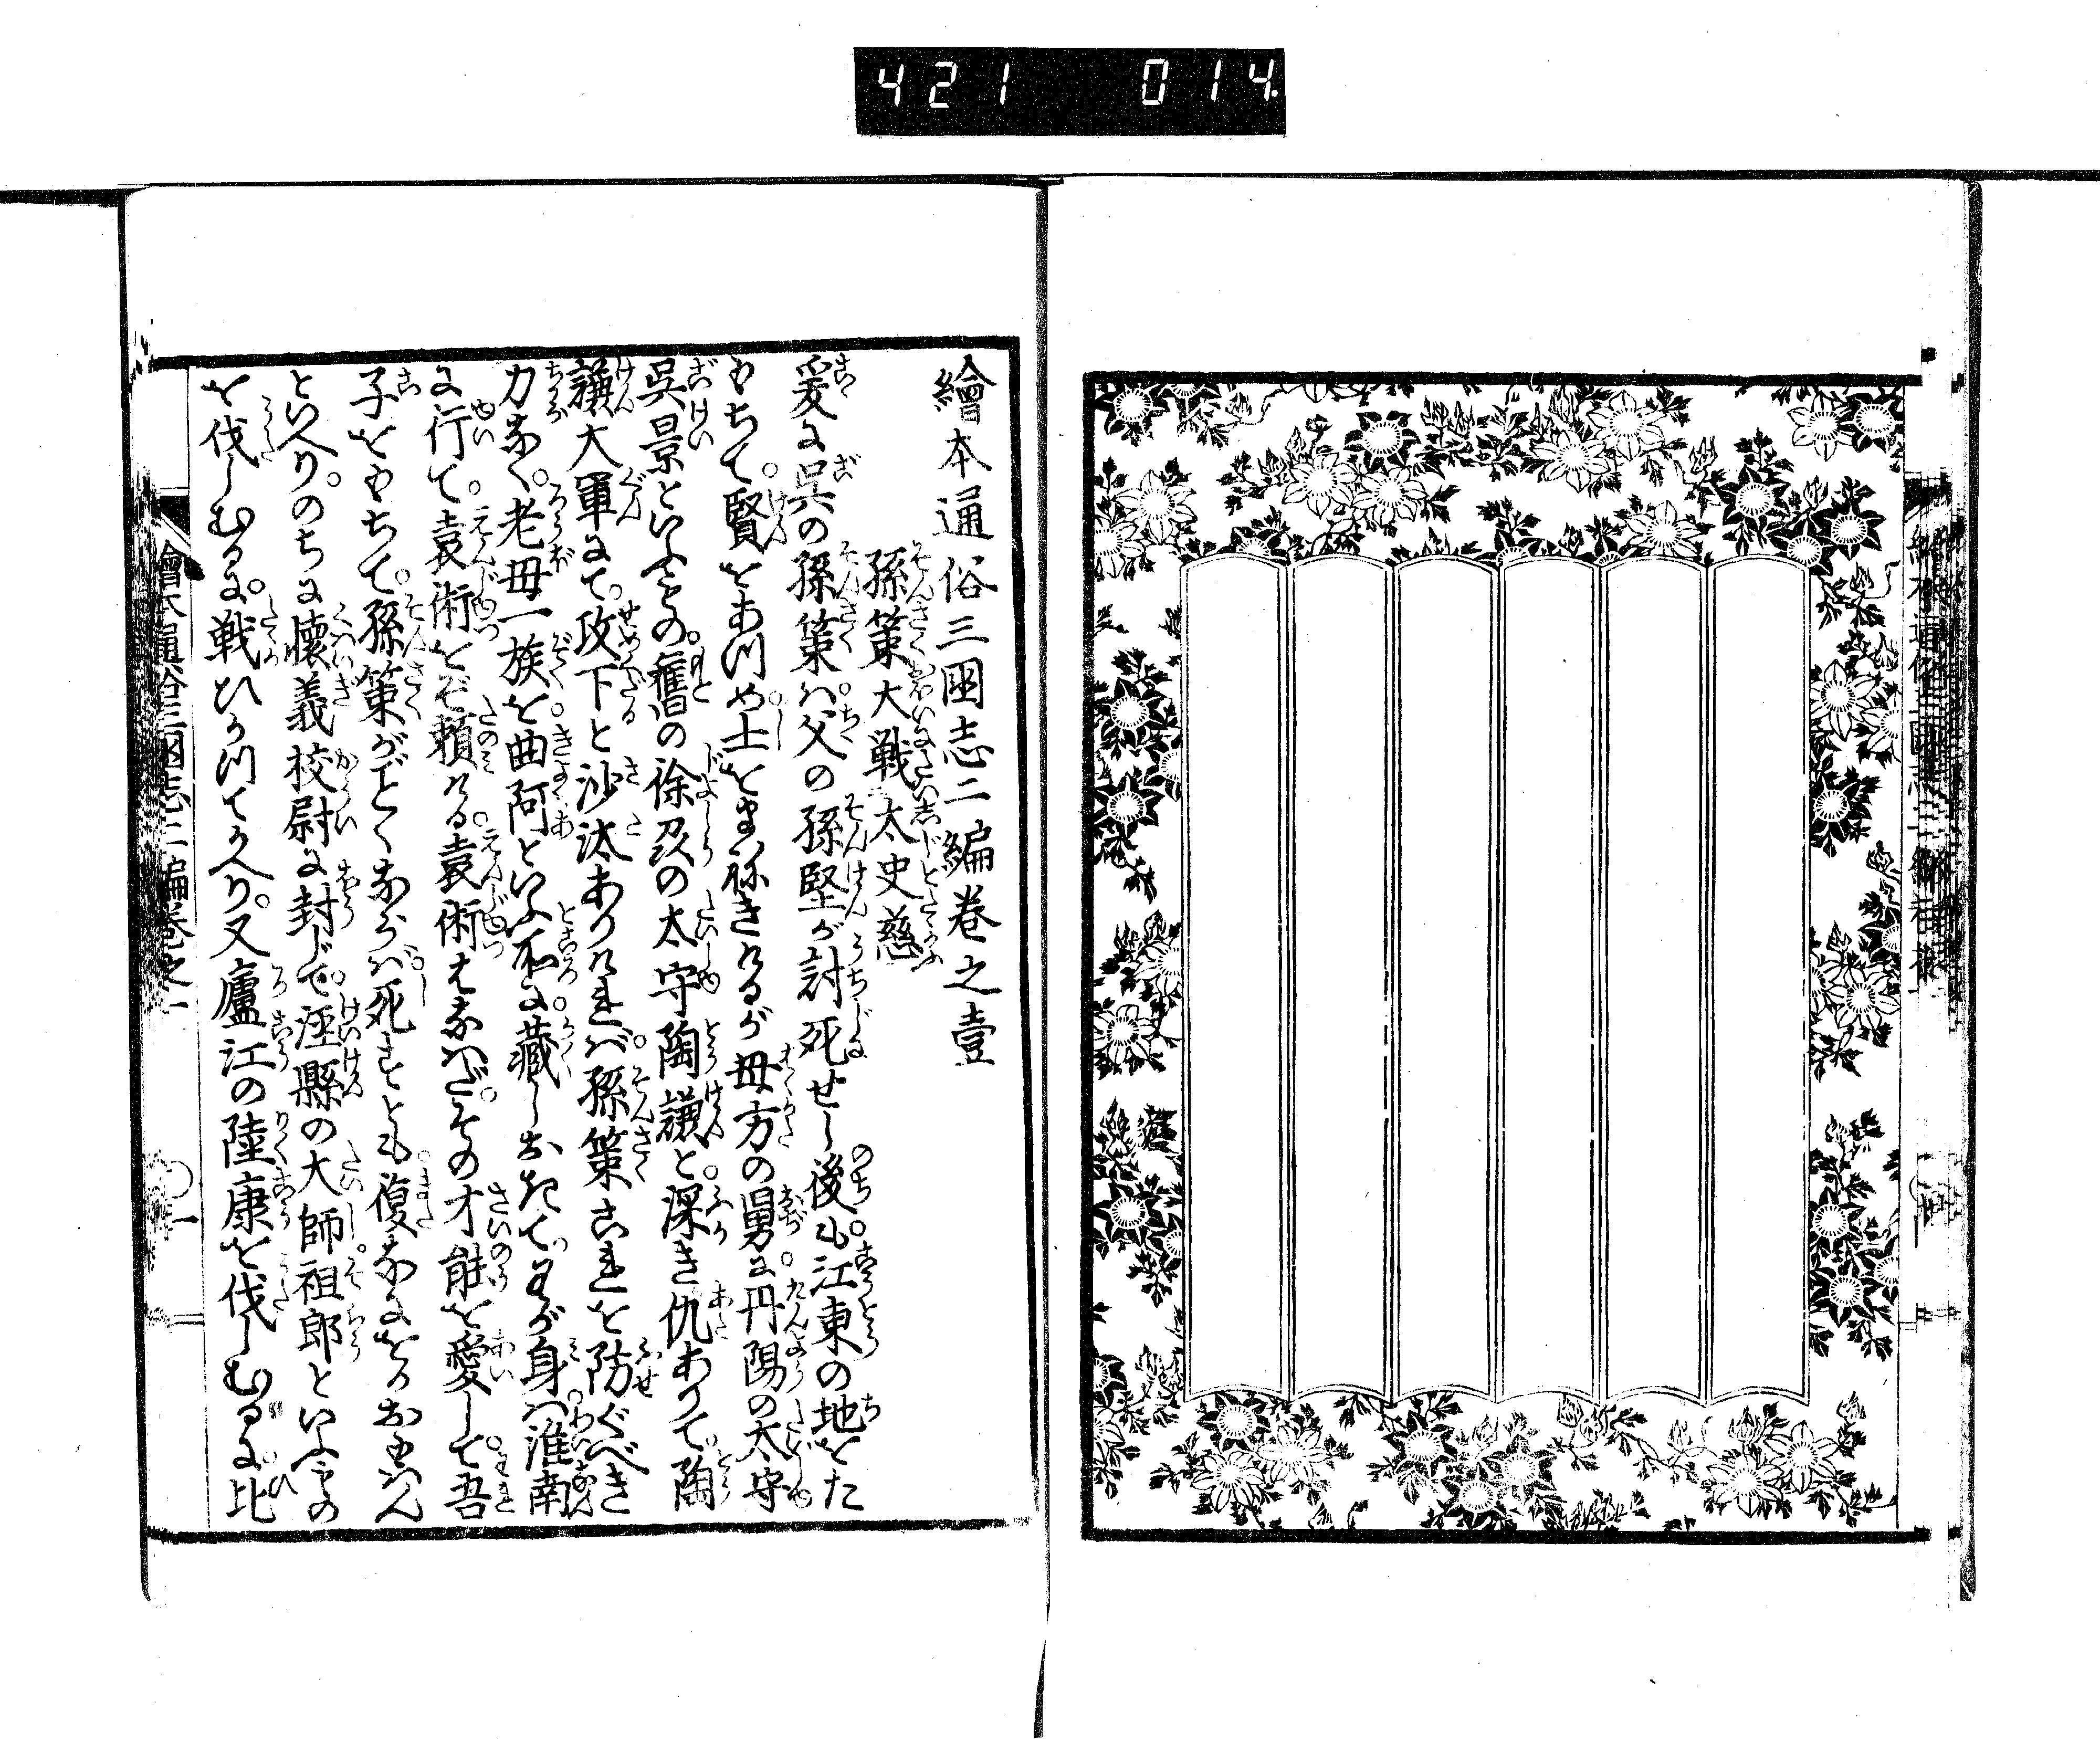 421 014
繪本通俗三國志二編卷之壹
孫策大戦太史慈
爰に呉の孫策ハ父の孫堅が討死せし後も江東の地をた
もちて賢をあつめ士をまねきけるが母方の舅に丹陽の太守
呉景といふもの舊の徐州の太守陶謙と深き仇ありて陶
謙大軍にて攻下と沙汰ありけれバ孫策これを防ぐべき
力なく老母一族を曲阿といふ所に藏しおきてわが身ハ淮南
に行て袁術をぞ頼ける袁術もなハだその才能を愛して吾
子をもちて孫策がごとくならバ死すとも復なにをかおもハん
といへりのちに懐義校尉に封じて涇縣の大師祖郎といふもの
を伐しむるに戦ひかつてかへり又廬江の陸康を伐しむるに比
繪本通俗三國志二編卷之一